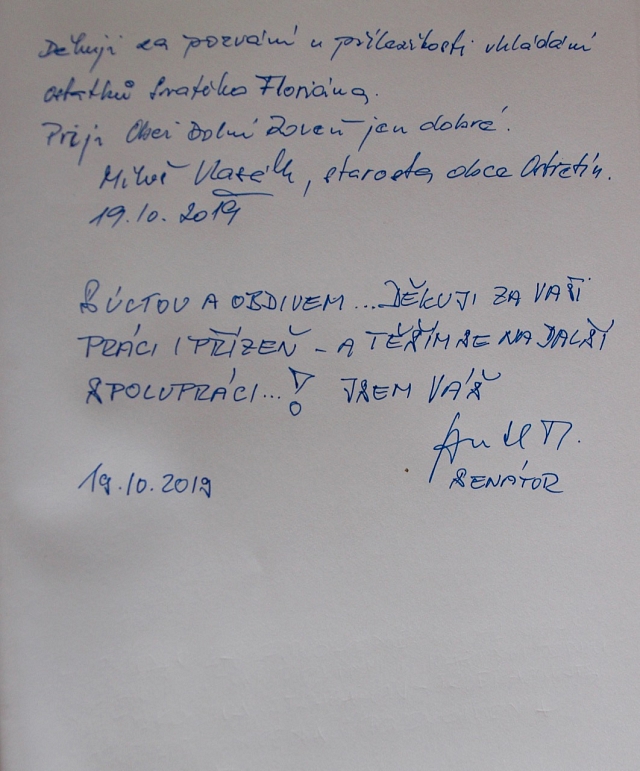 Děkuji za pozvání u příležitosti vkládání
ostatků Svatého Floriána.
Přeji Obci Dolní Roveň jen dobré.
Miloš, starosta obce Ostřetín.
19.10. 2019
S ÚCTOU A OBDIVEM... DĚKUJI ZA VAŠI
PRÁCI I PŘÍZEŇ – A TĚŠÍM SE NA DALŠÍ
SPOLUPRÁCI...! JSEM VÁŠ
SENÁTOR
19.10.2019